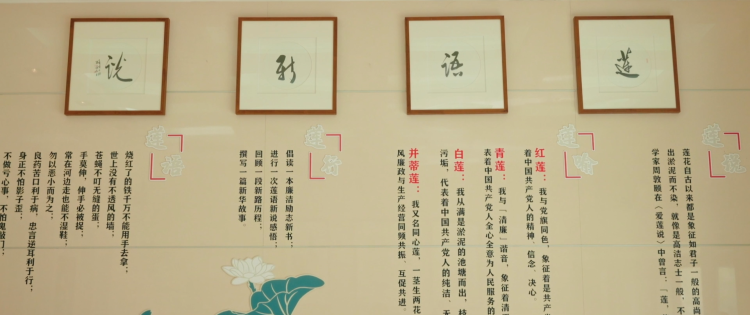 莲
语
新
说
莲花自古以来都是象征如君子一般的高尚
出淤泥而不染，就像是高洁志士一般，不
学家周敦颐在《爱莲说》中曾言：「莲，
红莲：我与党旗同色，象征着是共产
着中国共产党人的精神、信念、决心。
青莲：我与「清廉」谐音，象征着清
表着中国共产党人全心全意为人民服务的
白莲：我从满是淤泥的池塘而出，
污垢，代表着中国共产党人的纯洁、无
并蒂莲：我又名同心莲，一茎生两花
风廉政与生产经营同频共振、互促共进。
莲行
倡读一本廉洁励志新书；
进行一次莲语新说感悟；
回顾一段新路历程；
撰写一篇新华故事。
莲悟
烧红了的铁千万不能用手去拿；
世上没有不透风的墙；
苍蝇不叮无缝的蛋；
手莫伸，伸手必被捉；
常在河边走也能不湿鞋；
勿以恶小而为之；
良药苦口利于病，忠言逆耳利于行；
身正不怕影子歪；
不做亏心事，不怕鬼敲门；